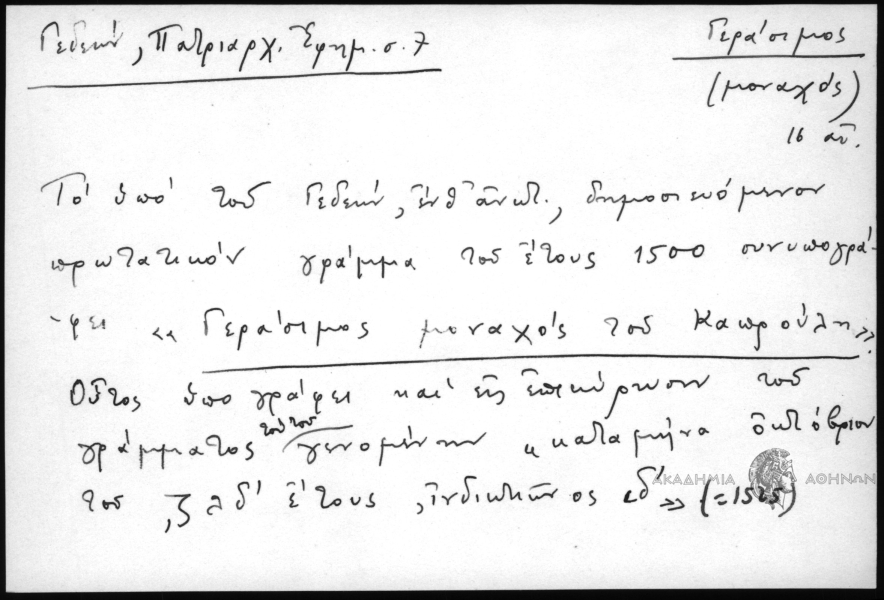 Γεδεών, Πατριαρχ. Ἐφημ. σ. 7
Γεράσιμος
(μοναχός)
16 αἰ.
Τό ὑπό τοῦ Γεδεών, ἔνθ' ἀνωτ., δημοσιευόμενον
πρωτατικόν γράμμα τοῦ ἔτους 1500 συνυπογρά-
-φει «Γεράσιμος μοναχός τοῦ Καπρούλη».
Οὗτος ὑπογράφει καί εἰς ἐπικύρωσιν τοῦ
γράμματος τούτου γενομένην «κατά μῆνα ὀκτώβριον
τοῦ ,ζλδ' ἔτους, ἰνδικτιῶνος ιδ'» (=1525)
ΑΚΑΔΗΜΙΑ ΑΘΗΝΩΝ